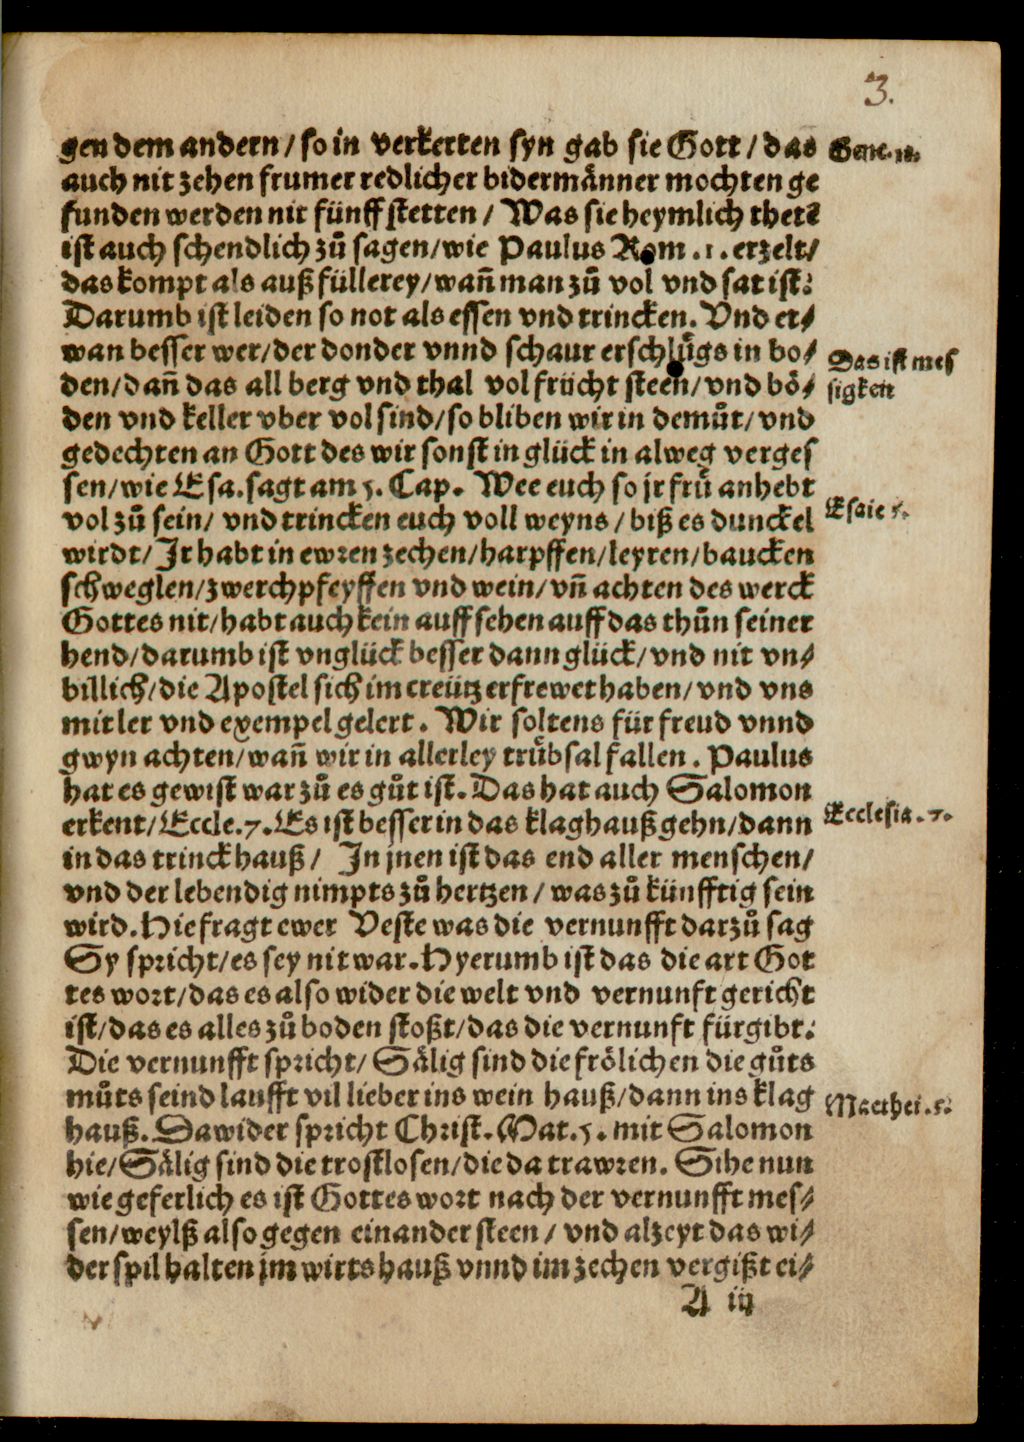 3.
gen dem andern / so in verkerten syn gab sie Gott / das
Gene. 18.
auch nit zehen frumer redlicher bidermaͤnner mochten ge
funden werden nit fünff stetten / Was sie heymlich thetē
ist auch schendlich zuͦ sagen / wie Paulus Rom .1. erzelt /
das kompt als auß füllerey / wañ man zuͦ vol vnd sat ist:
Darumb ist leiden so not als essen vnd trincken. Vnd et⸗
wan besser wer / der donder vnnd schaur erschluͤgs in bo⸗
den / dañ das all berg vnd thal vol frücht steen / vnd boͤ⸗
Das ist mes
sigkeit
den vnd keller vber vol sind / so bliben wir in demuͦt / vnd
gedechten an Gott des wir sonst in glück in alweg verges
sen / wie Esa. sagt am 5. Cap. Wee euch so jr fruͤ anhebt
vol zuͦ sein / vnd trincken euch voll weyns / biß es dunckel
Esaie 5.
wirdt / Jr habt in ewren zechen / harpffen / leyren / baucken
schweglen / zwerchpfeyffen vnd wein / vñ achten des werck
Gottes nit / habt auch kein auffsehen auff das thuͦn seiner
hend / darumb ist vnglück besser dann glück / vnd nit vn⸗
billich / die Apostel sich im creütz erfrewet haben / vnd vns
mit ler vnd exempel gelert. Wir soltens für freud vnnd
gwyn achten / wañ wir in allerley truͤbsal fallen. Paulus
hat es gewist war zuͦ es guͦt ist. Das hat auch Salomon
erkent / Eccle. 7. Es ist besser in das klaghauß gehn / dann
Ecclesia. 7.
in das trinckhauß / In jnen ist das end aller menschen /
vnd der lebendig nimpts zuͦ hertzen / was zuͦ künfftig sein
wird. Hie fragt ewer Veste was die vernunfft darzuͦ sag
Sy spricht / es sey nit war. Hyerumb ist das die art Got
tes wort / das es also wider die welt vnd vernunft gericht
ist / das es alles zuͦ boden stoßt / das die vernunft fürgibt:
Die vernunfft spricht / Saͤlig sind die froͤlichen die guͦts
muͦts seind laufft vil lieber ins wein hauß / dann ins klag
Matthei. 5.
hauß. Dawider spricht Christ. Mat. 5. mit Salomon
hie / Saͤlig sind die trostlosen / die da trawren. Sihe nun
wie geferlich es ist Gottes wort nach der vernunfft mes⸗
sen / weylß also gegen einander steen / vnd alzeyt das wi⸗
derspil halten jm wirtshauß vnnd im zechen vergißt ei⸗
A iij